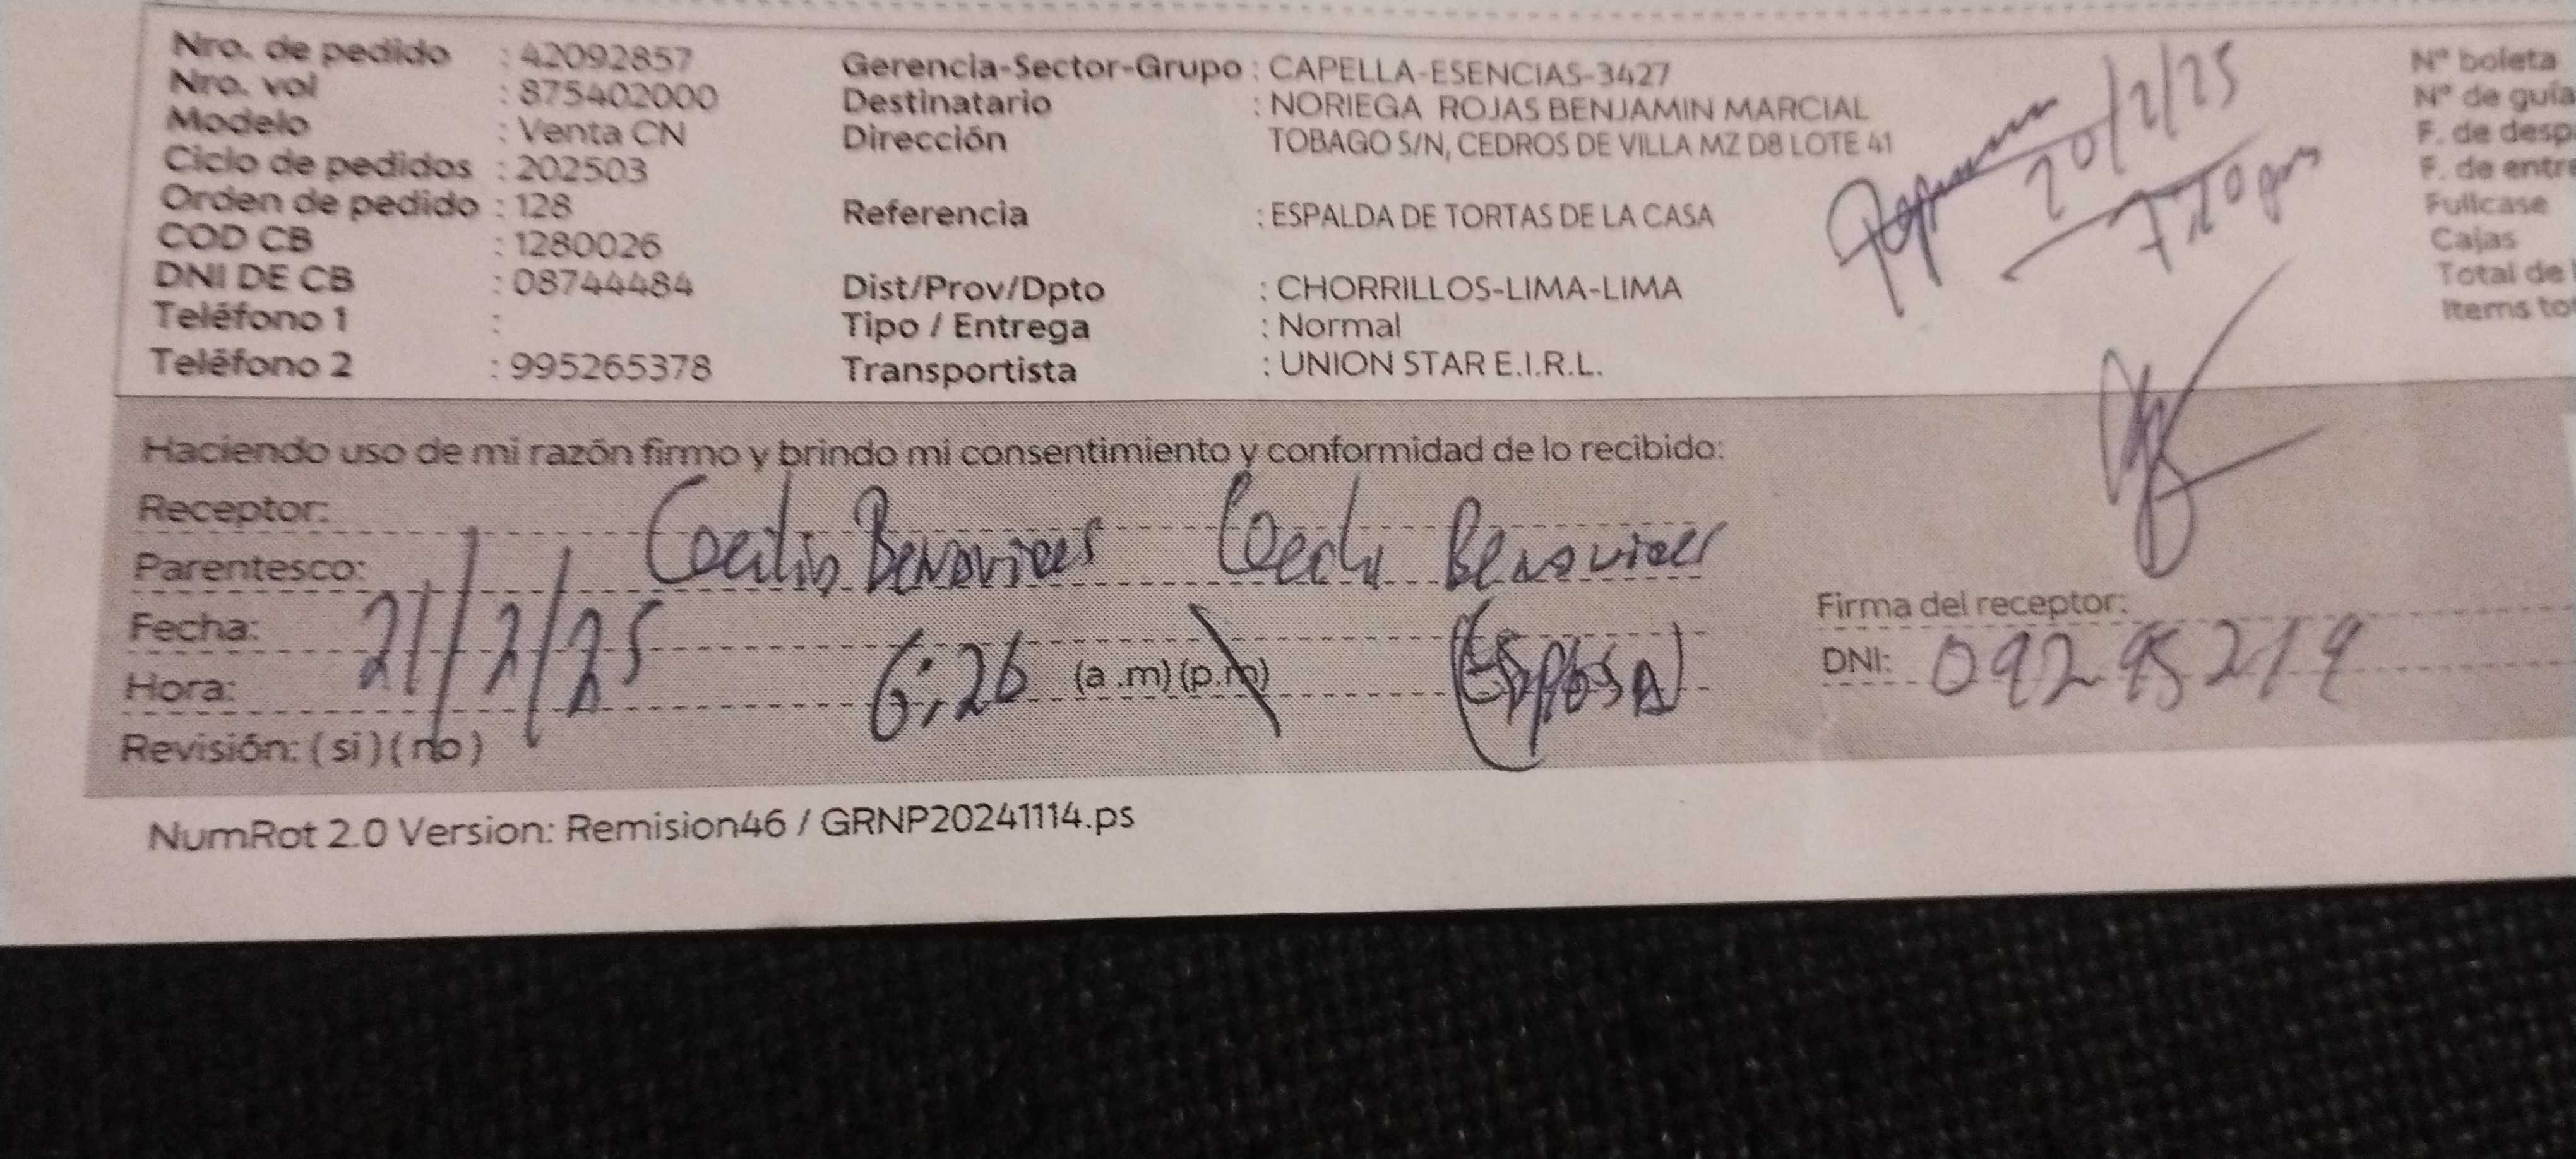 Nro. de pedido : 42092857
Nro. vol : 875402000
Modelo : Venta CN
Ciclo de pedidos : 202503
Orden de pedido : 128
COD CB : 1280026
DNI DE CB : 08744484
Teléfono 1 :
Teléfono 2 : 995265378
Gerencia-Sector-Grupo : CAPELLA-ESENCIAS-3427
Destinatario : NORIEGA ROJAS BENJAMIN MARCIAL
Dirección TOBAGO S/N, CEDROS DE VILLA MZ D8 LOTE 41
Referencia : ESPALDA DE TORTAS DE LA CASA
Dist/Prov/Dpto : CHORRILLOS-LIMA-LIMA
Tipo / Entrega : Normal
Transportista : UNION STAR E.I.R.L.
20/2/25
N° boleta
N° de guía
F. de desp
F. de entre
Fullcase
Cajas
Total de
Items to
Haciendo uso de mi razón firmo y brindo mi consentimiento y conformidad de lo recibido:
Receptor:
Cecilia Benavides Cecilia Benavides
Parentesco:
Fecha: 21/2/25
Hora: 6:26 (a .m) (p.m) (ESPOSA)
Revisión: ( si ) ( no )
Firma del receptor:
DNI: 09295219
NumRot 2.0 Version: Remision46 / GRNP20241114.ps